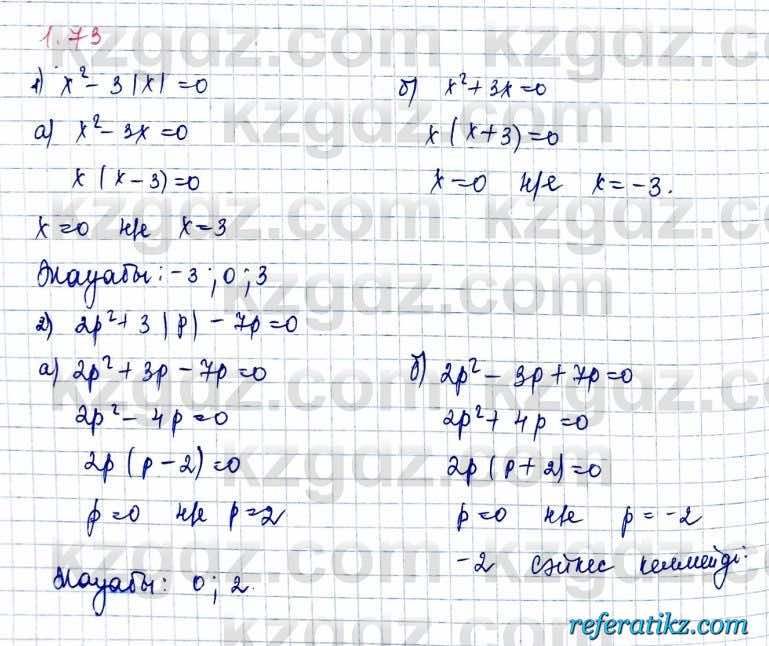 1.73
1) x² - 3|x| = 0
а) x² - 3x = 0
x(x - 3) = 0
x = 0 н/е x = 3
б) x² + 3x = 0
x(x + 3) = 0
x = 0 н/е x = -3.
Жауабы: -3; 0; 3
2) 2p² + 3|p| - 7p = 0
а) 2p² + 3p - 7p = 0
2p² - 4p = 0
2p(p - 2) = 0
p = 0 н/е p = 2
б) 2p² - 3p + 7p = 0
2p² + 4p = 0
2p(p + 2) = 0
p = 0 н/е p = -2
-2 сәйкес келмейді.
Жауабы: 0; 2.
referatikz.com